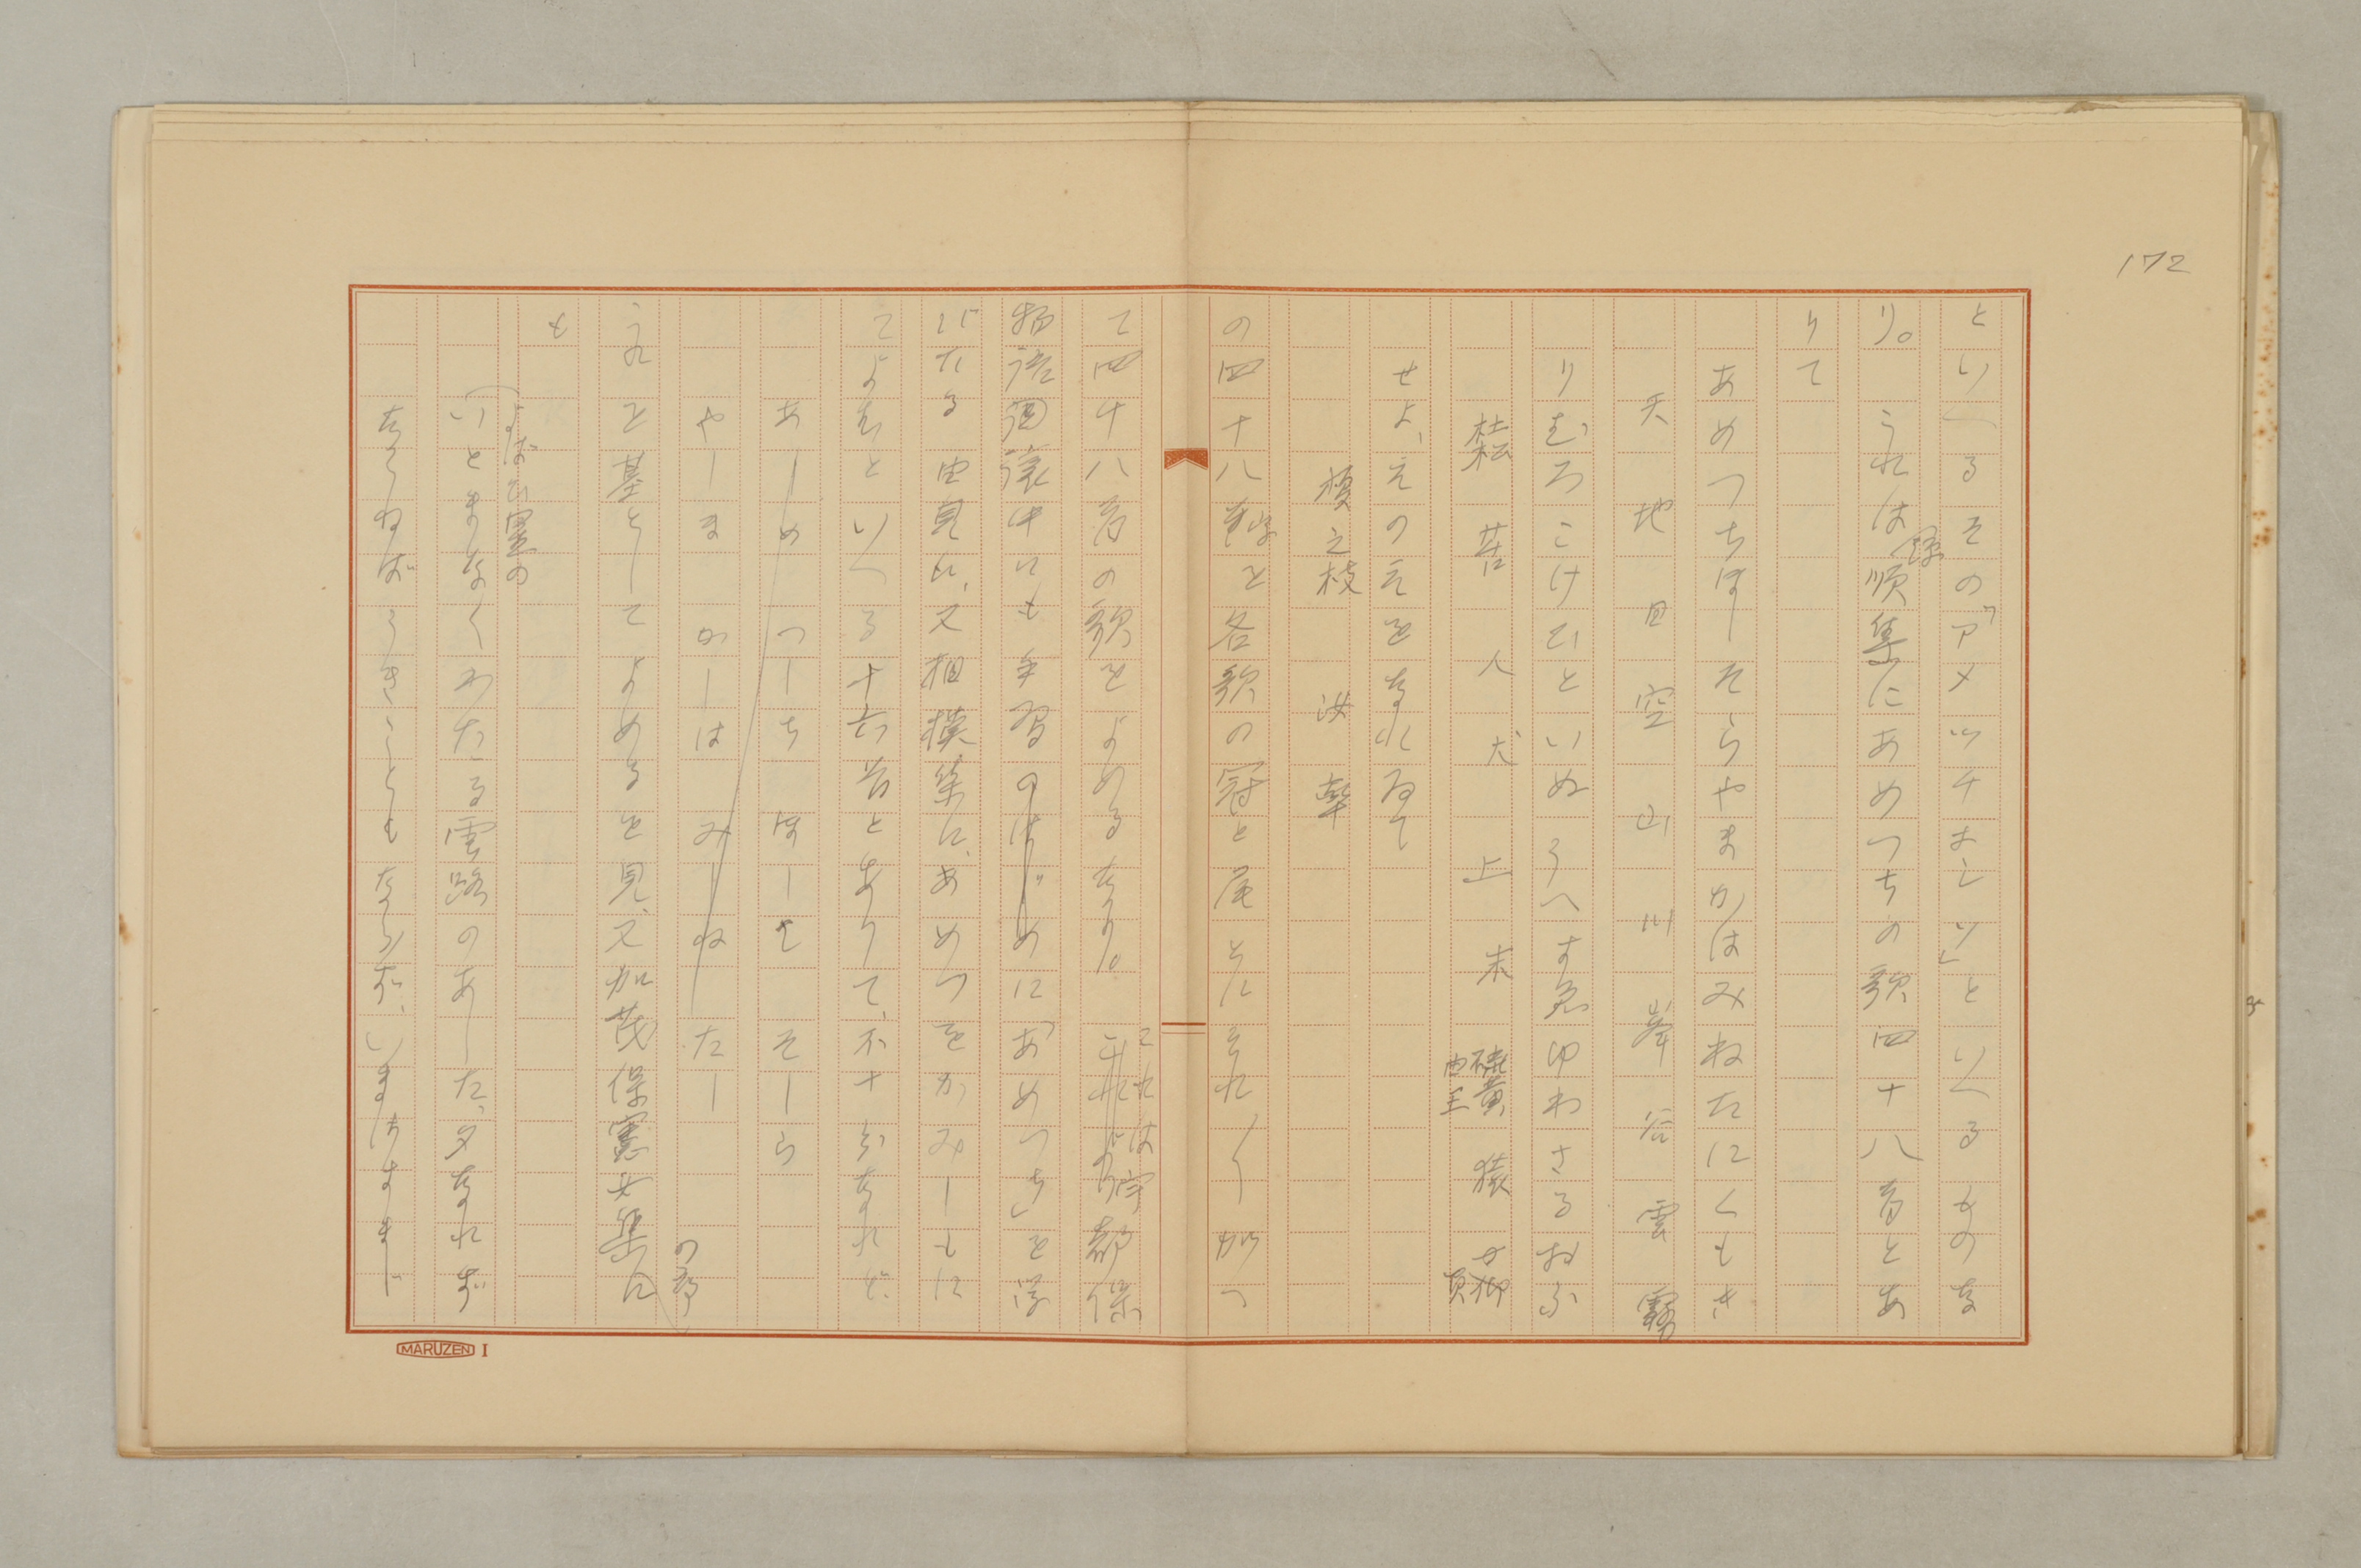 172
といへるその「アメツチホシソ」といへるものな
り。これは源順集にあめつちの歌四十八首とあ
りて
あめつちほしそらやまかはみねたにくもき
天地星空山川峯谷雲霧
りむろこけひといぬうへすゑゆわさるおふ
苔人犬上末硫黄猿
せよ、えのえをなれゐて
榎之枝
の四十八字を各歌の冠と尾とにそれ〳〵がつ
て四十八首の歌をよめるなり。これは宇都保
物語国讓中にも手習のはじめに「あめつち」を学
びたる由見え、又相模集に、あめつをかみしもに
てよむといへる十六首とありて、不十分なれど
あーめーつーちーほーしーそーら
やーまーかーはーみーねーた
の部
これを基としてよめるを見、又加茂保憲女集に
も
よばひ星の
いとまなくわたる雲路のあした, 夕なれば
ならねばうきこともならず、いまはすまじ
MARUZEN I